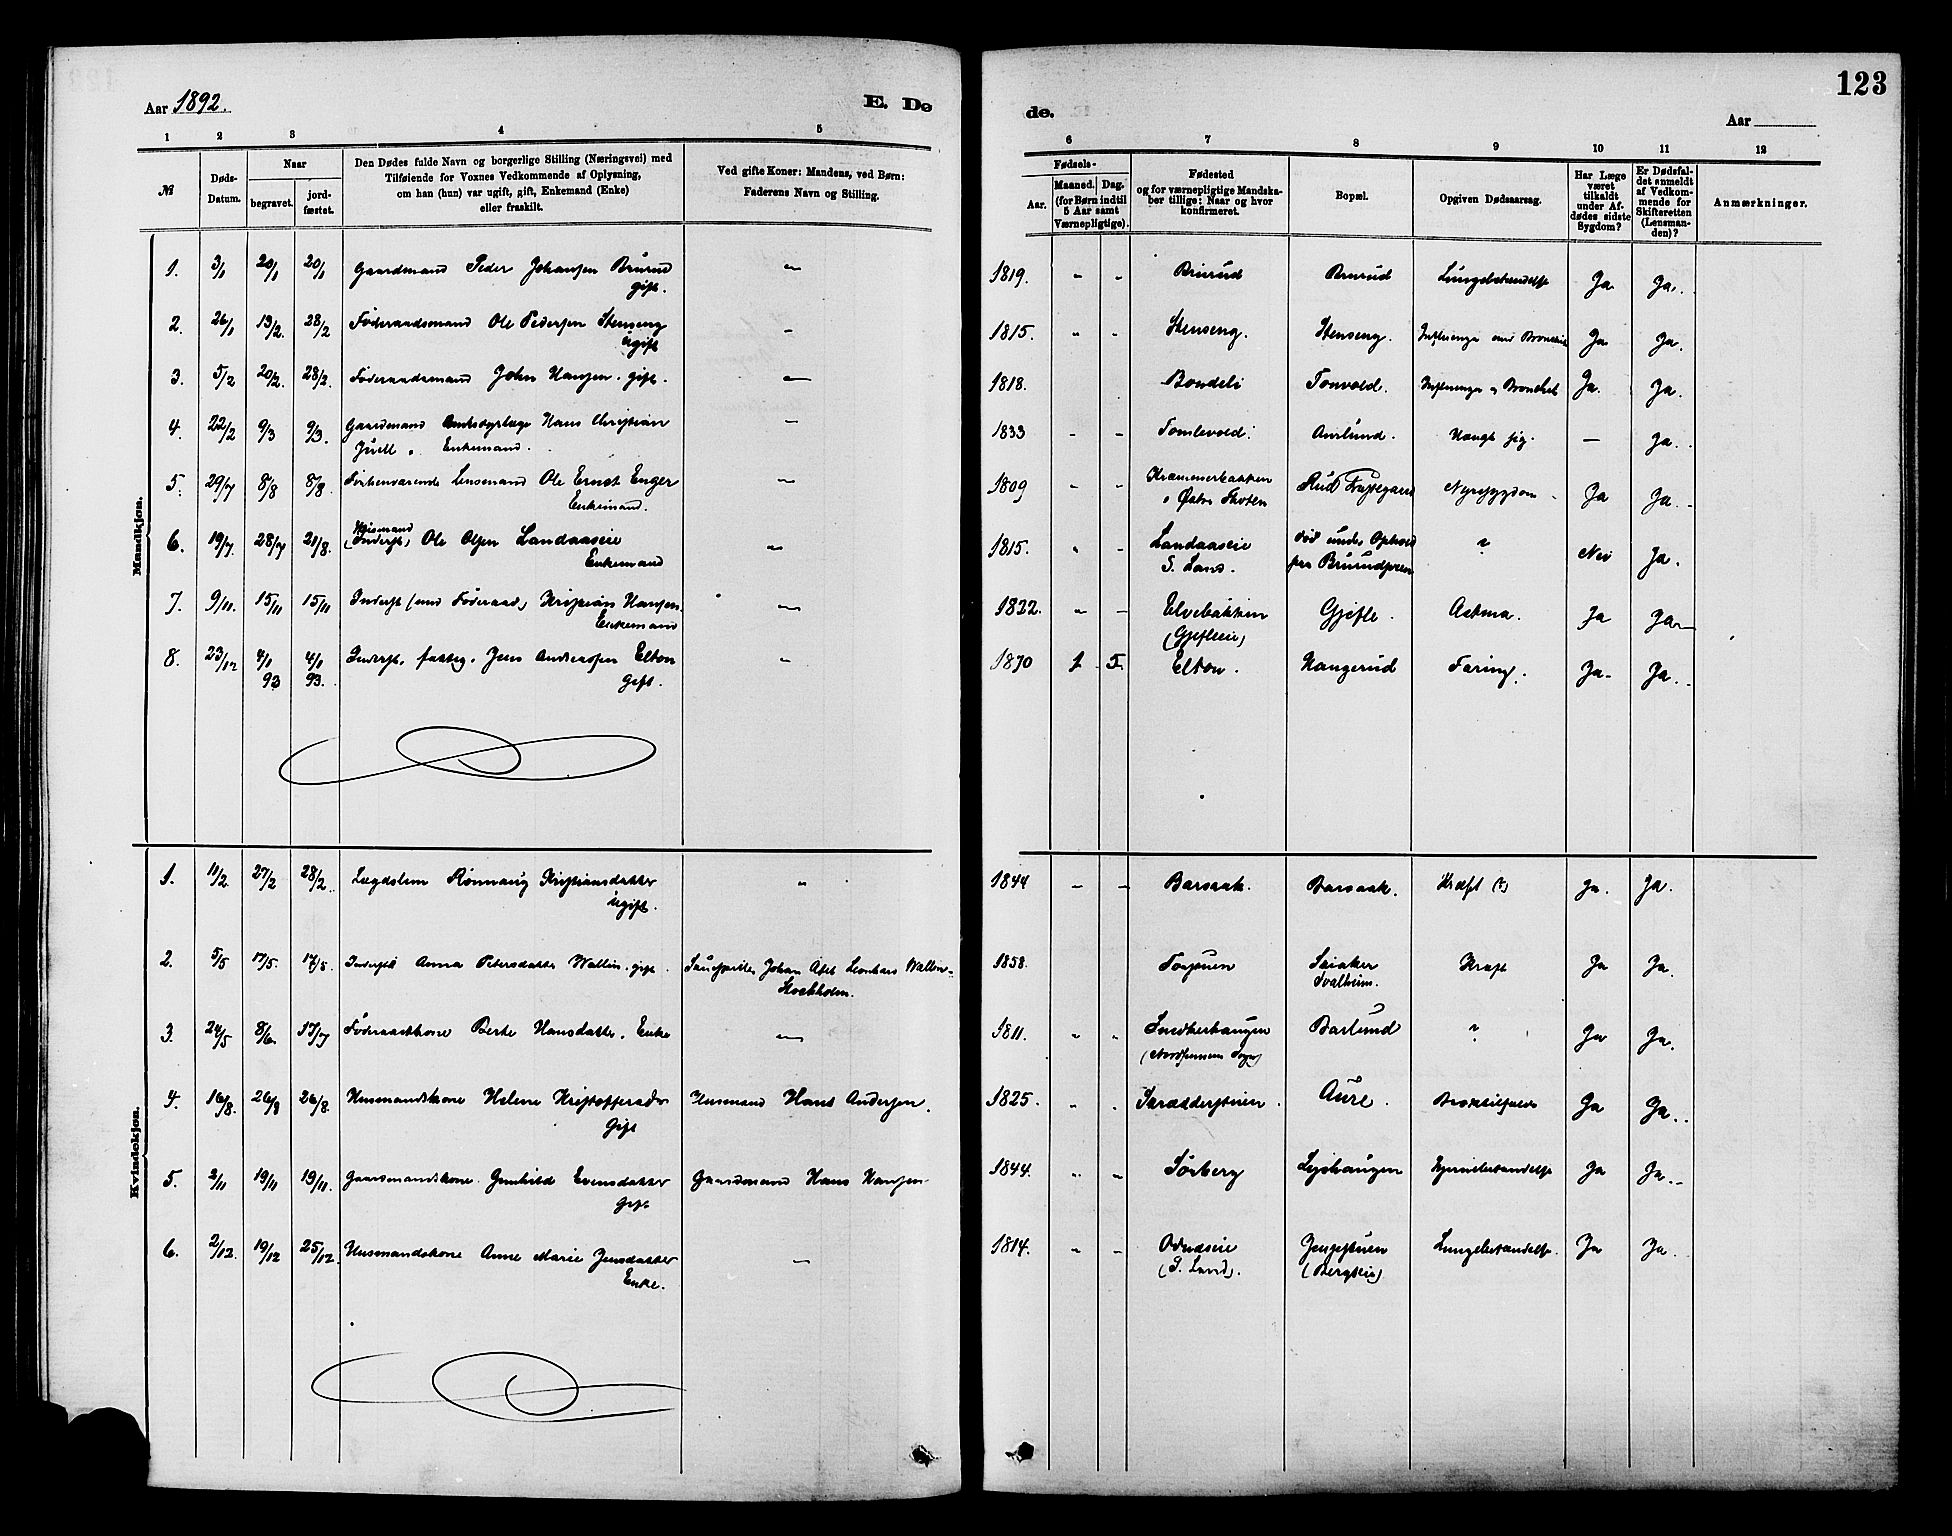 Aar 1892.
E. Dø
1 2 3 4 5
№
Døds-Datum.
Naar
begravet.
jord-fæstet.
Den Dødes fulde Navn og borgerlige Stilling (Næringsvei) med
Tilføiende for Voxnes Vedkommende af Oplysning,
om han (hun) var ugift, gift, Enkemand (Enke)
eller fraskilt.
Ved gifte Koner: Mandens, ved Børn:
Faderens Navn og Stilling.
Mandkjøn.
1. 3/1 20/1 20/1 Gaardmand Peder Johansen Brurud
gift.
2. 26/1 13/2. 28/2 Føderaadsmand Ole Pedersen Stenseng
ugift
3. 5/2 20/2. 28/2. Føderaadsmand John Hansen. gift.
4. 22/2 9/3 9/3. Gaardmand Hans Christian
Juell Enkemand.
5. 29/7 8/8 8/8. Forhenværende Lensmand Ole Ernst Enger
Enkemand.
6. 19/7. 28/7 21/8. (Inderst) Ole Olsen Landaaseie
Enkemand
7. 9/11. 15/11 15/11 Inderst (med Føderaad) Kristian Hansen.
Enkemand
8. 23/12 4/1 93 4/1 93. Inderst, fattig. Jens Andreassen Elton
Gift.
Kvindekjøn.
1. 11/2 27/2 28/2. Lægdslem Rönnaug Kristiansdatter
Ugift.
2. 5/5 17/5. 17/5. Inderst Anna Petersdatter Wallin. gift. Johan Axel Leonhard Wallin
Stockholm.
3. 24/5 8/6. 17/7 Føderaadskone Berte Hansdatter. Enke
4. 16/8. 26/8 26/8. Husmandskone Helene Kristoffersdtr Husmand Hans Andersen.
Gift
5. 2/11 19/11 19/11. Gaardmandskone. Gunhild Evensdatter Gaardmand Hans Hansen
Gift
6. 2/12. 19/12 25/12. Husmandskone Anne Marie Jensdatter
Enke.
123
de.
Aar
6 7 8 9 10 11 12
Fødsels-
Aar.
Maaned. Dag.
(for Børn indtil
5 Aar samt
Værnepligtige).
Fødested
og for værnepligtige Mandska-
ber tillige: Naar og hvor
konfirmeret.
Bopæl.
Opgiven Dødsaarsag.
Har Læge
været
tilkaldt
under Af-
dødes sidste
Sygdom?
Er Dødsfal-
det anmeldt
af Vedkom-
mende for
Skifteretten
(Lensman-
den)?
Anmærkninger.
1819. Brurud Brurud Lungebetændelse Ja Ja.
1815. Stenseng. Stenseng. Influenza med Ja Ja.
1818. Bondeli Tonvold. Influenza Ja. Ja.
1833 Tomlevold. Aurlund. Hængt sig. — Ja.
1809 Nyresygdom Ja Ja.
Østre Thoten
1815. Landaaseie død under Ophold ? Nei Ja.
S. Land. paa
1822. Elvebakken Gjefle. Astma. Ja Ja
(Gjefleeie)
1870 1 5. Elton. Hangerud Tæring. Ja. Ja.
1844 Barsaak. Barsaak. Kræft (?) Ja. Ja.
1858. Kræft Ja Ja.
1811. Snedkerhaugen Barlund ? Ja Ja.
1825. Skrædderstuen. Aure. Ja Ja.
1844. Sørberg Hjernebetændelse Ja Ja.
1814. Odndseie Lungebetændelse. Ja Ja.
(S. Land). (Bergseie)